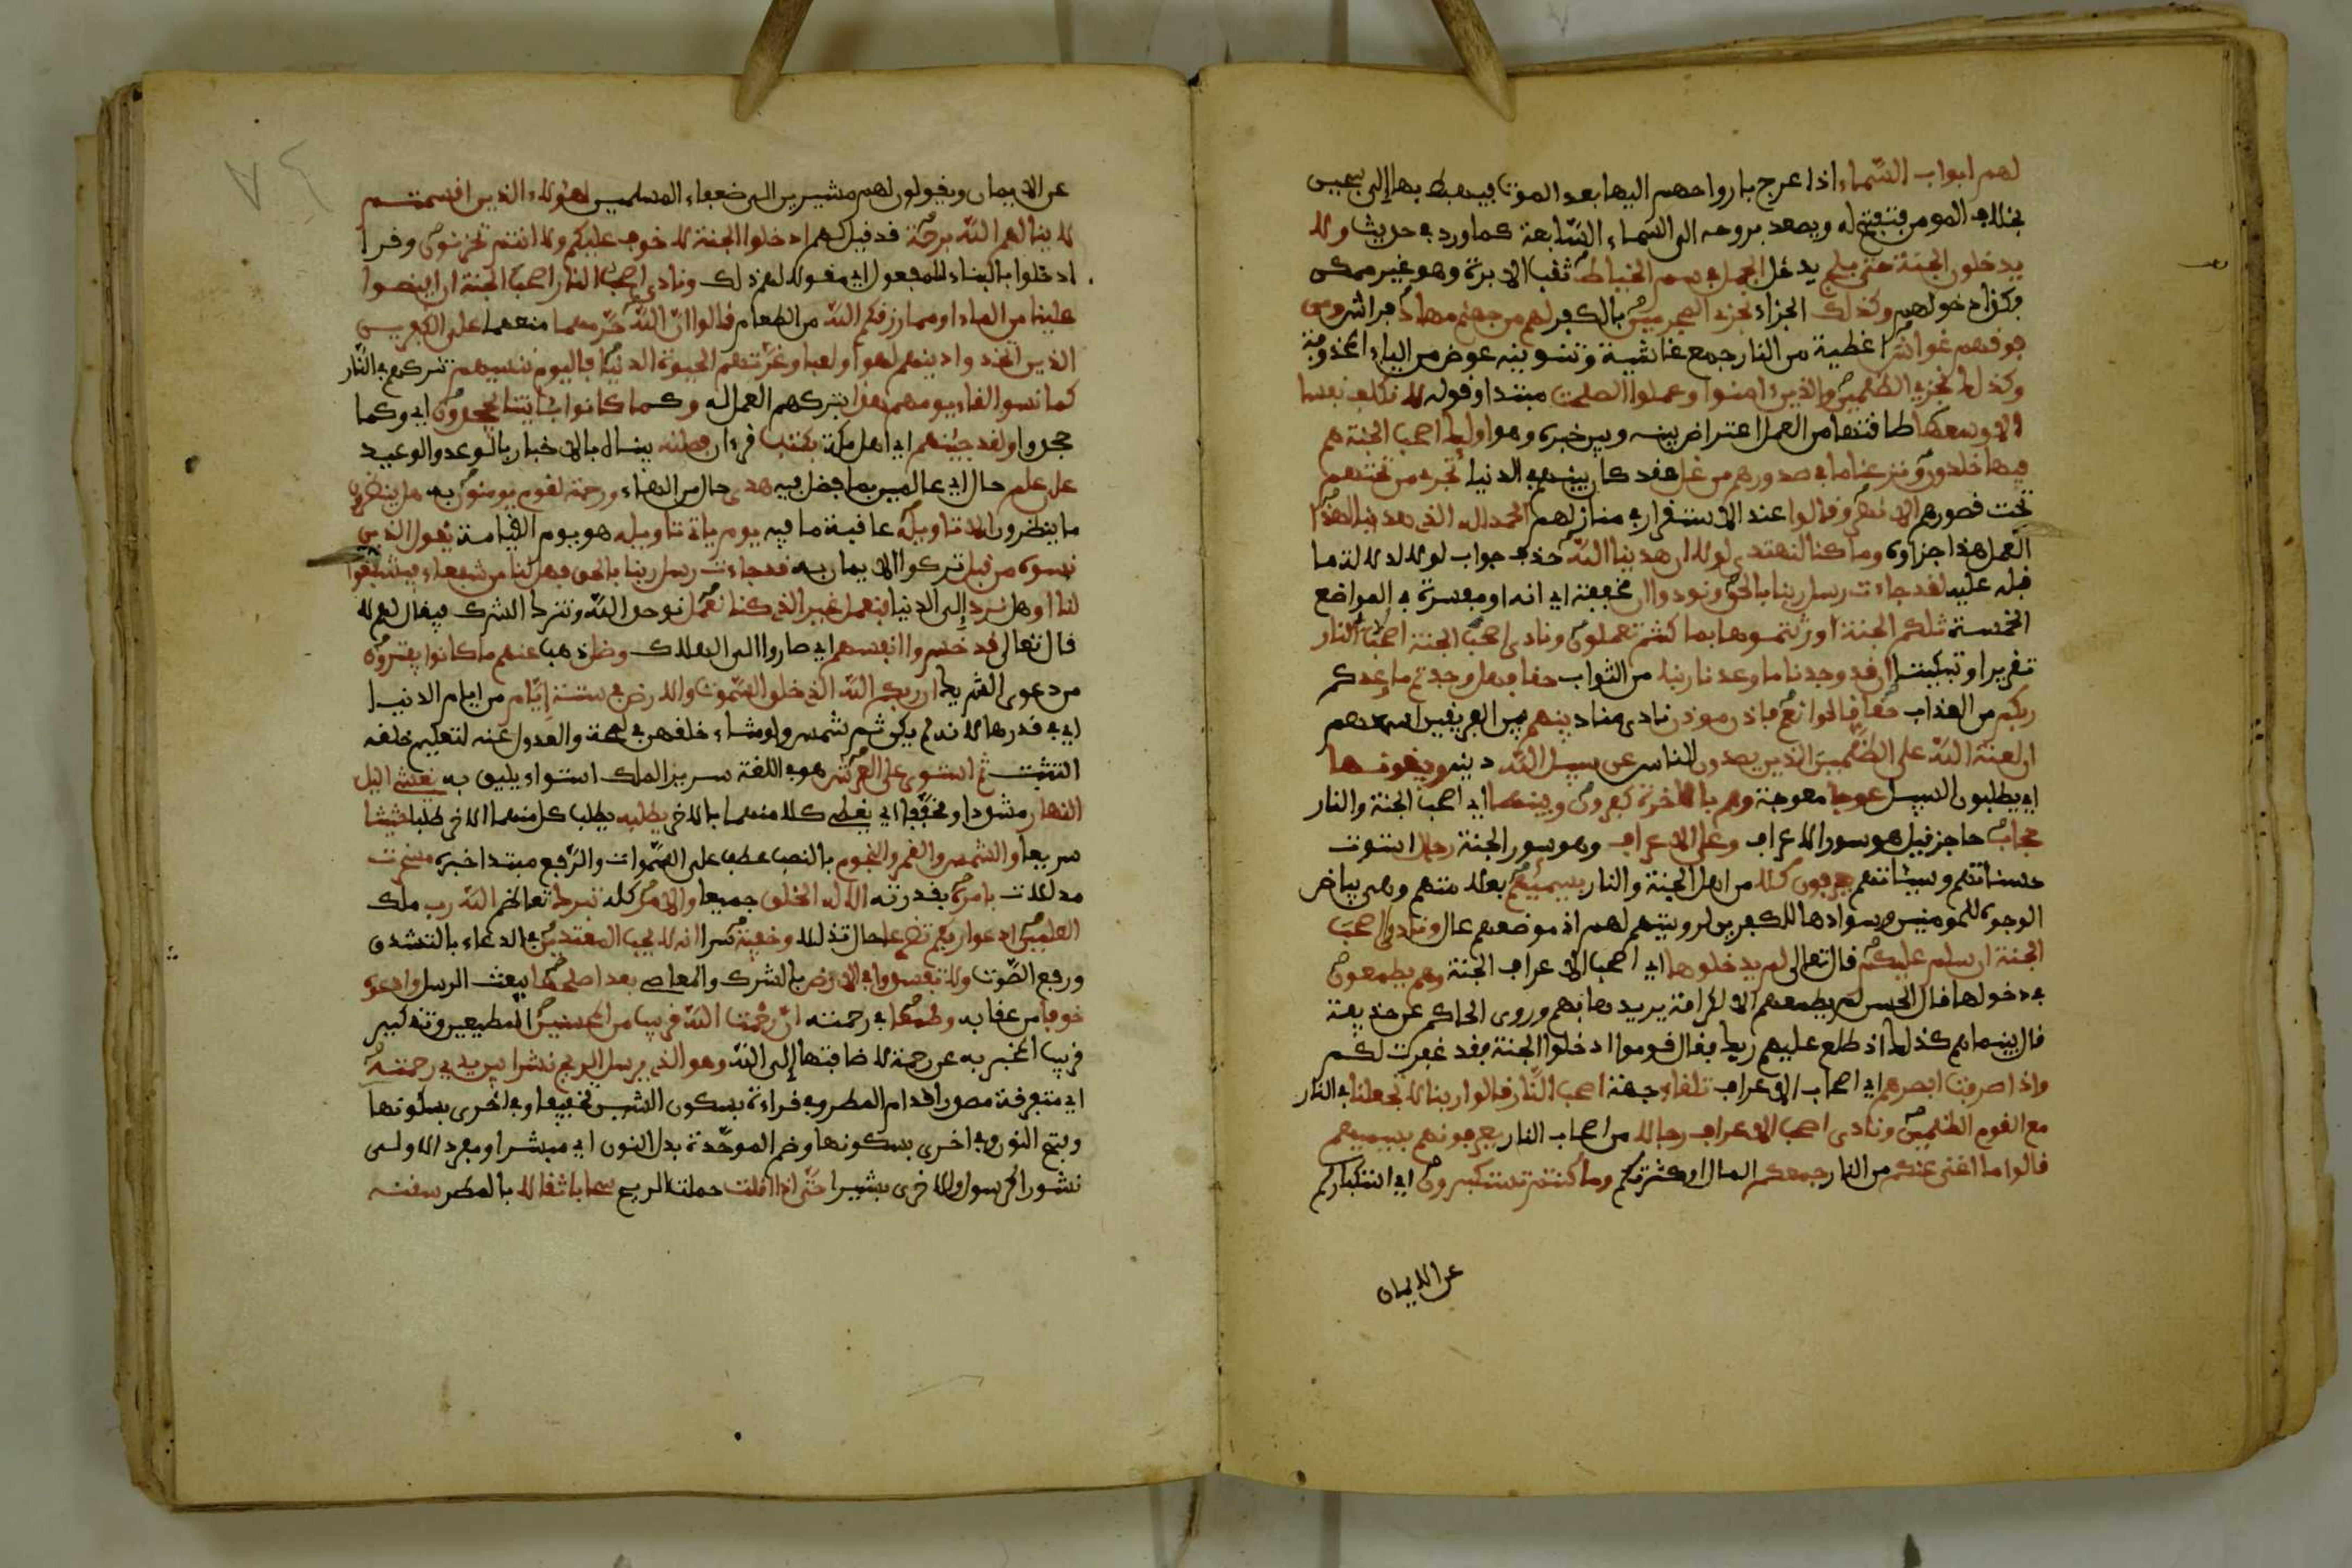 لهم ابواب السّماء اذا عرج بارواحهم اليها بعد الموت فيهبط بها إلى سجين
بخلاف المومن فتفتح له ويصعد بروحه الى السّماء السّابعة كما ورد في حديث ولا
يدخلون الجنة حتى يلج يدخل الجمل في سم الخياط ثقب الابرة وهو غير ممكن
فكذا دخولهم وكذلك الجزاء نجزي المجرمين بالكفر لهم من جهنم مهاد فراش ومن
فوقهم غواش اغطية من النار جمع غاشية وتنوينه عوض من الياء المحذوفة
وكذلك نجزي الظلمين والذين ءامنوا وعملوا الصلحت مبتدا وقوله لا نكلف نفسا
الا وسعها طاقتها من العمل اعتراض بينه وبين خبره وهو اوليك اصحب الجنة هم
فيها خلدون ونزعنا ما في صدورهم من غل حقد كان بينهم في الدنيا تجري من تحتهم
تحت قصورهم الانهر وقالوا عند الاستقرار في منازلهم الحمد لله الذي هدينا لهذا
العمل هذا جزاوه وما كنا لنهتدي لولا ان هدينا اللّه حذف جواب لولا لدلالة ما
قبله عليه لقد جاءت رسل ربنا بالحق ونودوا ان مخففة اي انه او مفسرة في المواضع
الخمسة تلكم الجنة اورثتموها بما كنتم تعملون ونادى اصحب الجنة اصحب النار
تقريرا وتبكيتا ان قد وجدنا ما وعدنا ربنا من الثواب حقا فهل وجدتم ما وعدكم
ربكم من العذاب حقا قالوا نعم فاذن موذن نادى مناد بينهم بين الفريقين اسمعهم
ان لعنة اللّه على الظلمين الذين يصدون الناس عن سبيل اللّه دينه ويبغونها
اي يطلبون السبيل عوجا معوجة وهم بالاخرة كفرون وبينهما اي اصحب الجنة والنار
حجاب حاجز قيل هو سور الاعراف وعلى الاعراف وهو سور الجنة رجال استوت
حسناتهم وسيئاتهم يعرفون كلا من اهل الجنة والنار بسيميهم بعلامتهم وهي بياض
الوجوه للمومنين وسوادها للكفرين لرويتهم لهم اذ موضعهم عال ونادوا اصحب
الجنة ان سلم عليكم قال تعالى لم يدخلوها اي اصحب الاعراف الجنة وهم يطمعون
في دخولها قال الحسن لم يطمعهم الا لكرامة يريدها بهم وروى الحاكم عن حذيفة
قال بينما هم كذلك اذ طلع عليهم ربك فقال قوموا ادخلوا الجنة فقد غفرت لكم
واذا صرفت ابصرهم اي اصحاب الاعراف تلقاء جهة اصحب النّار قالوا ربنا لا تجعلنا في النار
مع القوم الظلمين ونادى اصحب الاعراف رجالا من اصحاب النار يعرفونهم بسيميهم
قالوا ما اغنى عنكم من النار جمعكم المال او كثرتكم وما كنتم تستكبرون اي استكباركم
عن الايمان
عن الايمان ويقولون لهم مشيرين الى ضعفاء المسلمين اهؤلاء الذين اقسمتم
لا ينالهم اللّه برحمة قد قيل لهم ادخلوا الجنة لا خوف عليكم ولا انتم تحزنون وقرا
ادخلوا بالبناء للمفعول اي مقولا لهم ذلك ونادى اصحب النار اصحب الجنة ان افيضوا
علينا من الماء او مما رزقكم اللّه من الطعام قالوا انّ اللّه حرّمهما منعهما على الكفرين
الذين اتخذوا دينهم لهوا ولعبا وغرّتهم الحيوة الدنيا فاليوم ننسيهم نتركهم في النّار
كما نسوا لقاء يومهم هذا بتركهم العمل له وكما كانوا بئايتنا يجحدون اي وكما
جحدوا ولقد جئنهم اي اهل مكة بكتب قرءان فصلنه بيناه بالاخبار بالوعد والوعيد
على علم حال اي عالمين بما فصل فيه هدى حال من الهاء ورحمة لقوم يومنون به هل ينظرون
ما ينظرون الا تاويله عاقبة ما فيه يوم ياتي تاويله هو يوم القيامة يقول الذين
نسوه من قبل تركوا الايمان به قد جاءت رسل ربنا بالحق فهل لنا من شفعاء فيشفعوا
لنا او هل نرد إلى الدنيا فنعمل غير الذي كنا نعمل نوحد اللّه ونترك الشرك فيقال لهم لا
قال تعالى قد خسروا انفسهم اي صاروا الى الهلاك وضل ذهب عنهم ما كانوا يفترون
من دعوى الشريك ان ربكم اللّه الذي خلق السموت والارض في ستة ايّام من ايام الدنيا
اي في قدرها لانه لم يكن ثم شمس ولو شاء خلقهن في لمحة والعدول عنه لتعليم خلقه
التثبت ثم استوى على العرش هو في اللغة سرير الملك استواء يليق به يغشي اليل
النهار مشددا ومخففا اي يغطي كلا منهما بالاخر يطلبه يطلب كل منهما الاخر طلبا حثيثا
سريعا والشمس والقمر والنجوم بالنصب عطف على السّموات والرّفع مبتدا خبره مسخرت
مذللات بامره بقدرته الا له الخلق جميعا والامر كله تبرك تعاظم اللّه رب ملك
العلمين ادعوا ربكم تضرعا حال تذللا وخفية سرا انه لا يحب المعتدين في الدعاء بالتشدق
ورفع الصّوت ولا تفسدوا في الارض بالشرك والمعاصي بعد اصلحها ببعث الرسل وادعوه
خوفا من عقابه وطمعا في رحمته انّ رحمت اللّه قريب من المحسنين المطيعين وتذكير
قريب المخبر به عن رحمة لاضافتها إلى اللّه وهو الذي يرسل الريح نشرا بين يدي رحمته
اي متفرقة قدام المطر وفي قراءة بسكون الشين تخفيفا وفي اخرى بسكونها
وفتح النون وفي اخرى بسكونها وضم الموحّدة بدل النون اي مبشرا ومفرد الاولى
نشور كرسول والاخرى بشير حتّى اذا اقلت حملت الريح سحابا ثقالا بالمطر سقنه